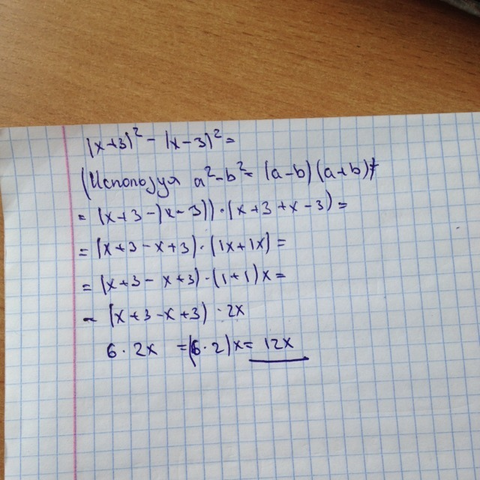 (x+3)² - (x-3)² =
(Используя a²-b² = (a-b)(a+b))
= (x+3-(x-3))·(x+3+x-3) =
= (x+3-x+3)·(1x+1x) =
= (x+3-x+3)·(1+1)x =
= (x+3-x+3)·2x
6·2x = (6·2)x = 12x